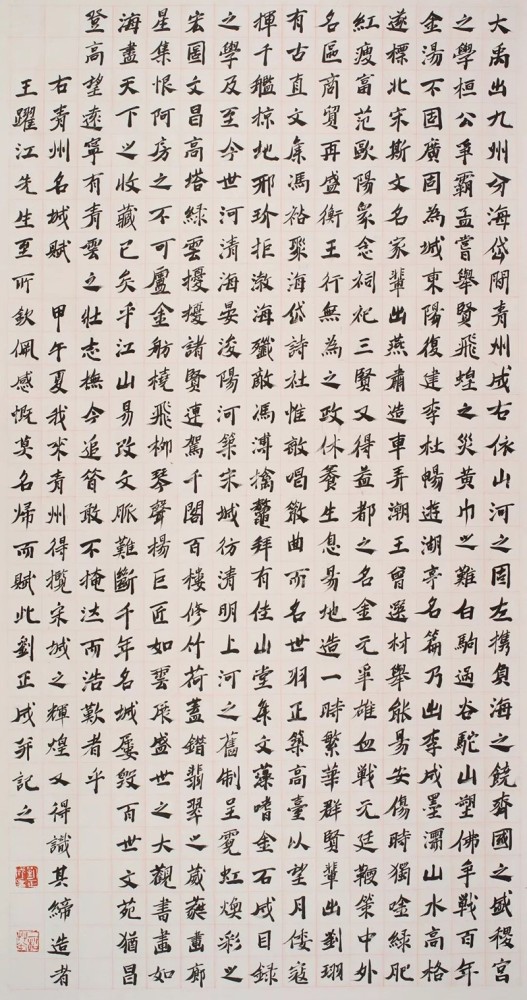 大禹出九州分海岱間青州成右依山河之固左攜負海之饒齊國之盛稷宮
之學桓公爭霸孟嘗舉賢飛蝗之災黃巾之難白駒過谷駝山塑佛爭戰百年
金湯不固廣固為城東陽復建李杜暢遊湖亭名篇乃出李成墨濡山水高格
遂標北宋斯文名家輩出燕肅造車弄潮王曾選材舉能易安傷時獨唫綠肥
紅瘦富范歐陽眾念祠祀三賢又得益都之名金元爭雄血戰元廷鞭策中外
名區商貿再盛衡王行無為之政休養生息易地造一時繁華群賢輩出劉珝
有古直文廉馮裕聚海岱詩社惟敏唱散曲而名世羽正築高臺以望月倭寇
揮千艦掠地邢玠拒潋海殲敵馮溥擒鰲拜有佳山堂集文藻嗜金石成目録
之學及至今世河清海晏浚陽河築宋城彷清明上河之舊制呈霓虹煥彩之
宏圖文昌高塔綠雲擾擾諸賢連駕千閣百樓修竹荷蓋錯翡翠之葳蕤畫廊
星集恨阿房之不可盧金舫橈飛柳琴聲楊巨匠如雲展盛世之大觀書畫如
海盡天下之收藏已矣乎江山易改文脈難斷千年名城屢毀百世文苑猶昌
登高望遠寧有青雲之壯志撫今追昔敢不掩泣而浩歎者乎
右青州名城賦 甲午夏我來青州得攬宋城之輝煌又得識其締造者
王躍江先生至所欽佩感慨莫名歸而賦此劉正成并記之